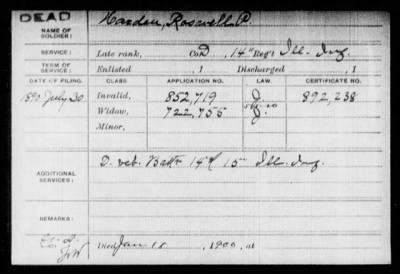 DEAD
NAME OF SOLDIER: Harden, Roswell P.
SERVICE: Late rank, Co D, 14" Reg't Ill. Inf.
TERM OF SERVICE: Enlisted , 1 Discharged , 1
DATE OF FILING. CLASS. APPLICATION NO. LAW. CERTIFICATE NO.
1890 July 30 Invalid, 852,719 J. 892,238
Widow, 722,755 J.
Minor,
ADDITIONAL SERVICES: D. vet. Batt'n 14 & 15 Ill. Inf.
REMARKS:
Died Jan 10 , 1900, at